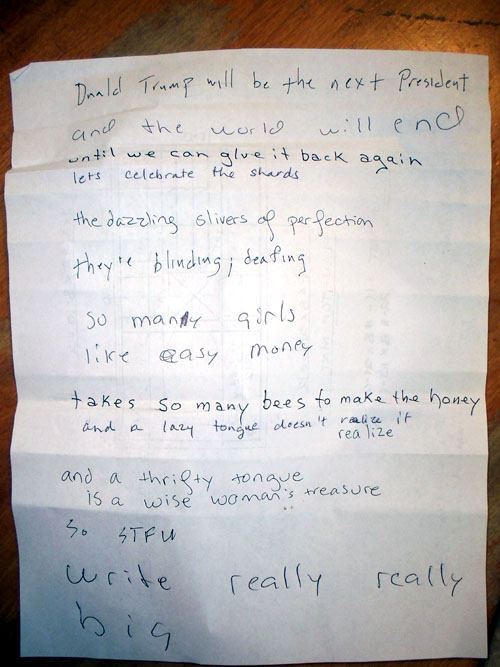 Dnald Trump will be the next President
and the world will end
until we can glue it back again
lets celebrate the shards
the dazzling slivers of perfection
they're blinding; deafing
so many girls
like easy money
takes so many bees to make the honey
and a lazy tongue doesn't realize it
realize
and a thrifty tongue
is a wise woman's treasure
So STFU
write really really
big